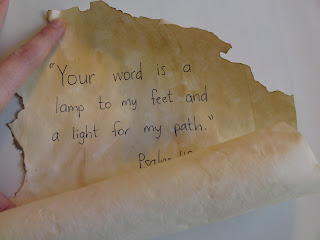 "Your word is a
lamp to my feet and
a light for my path."
Psalm